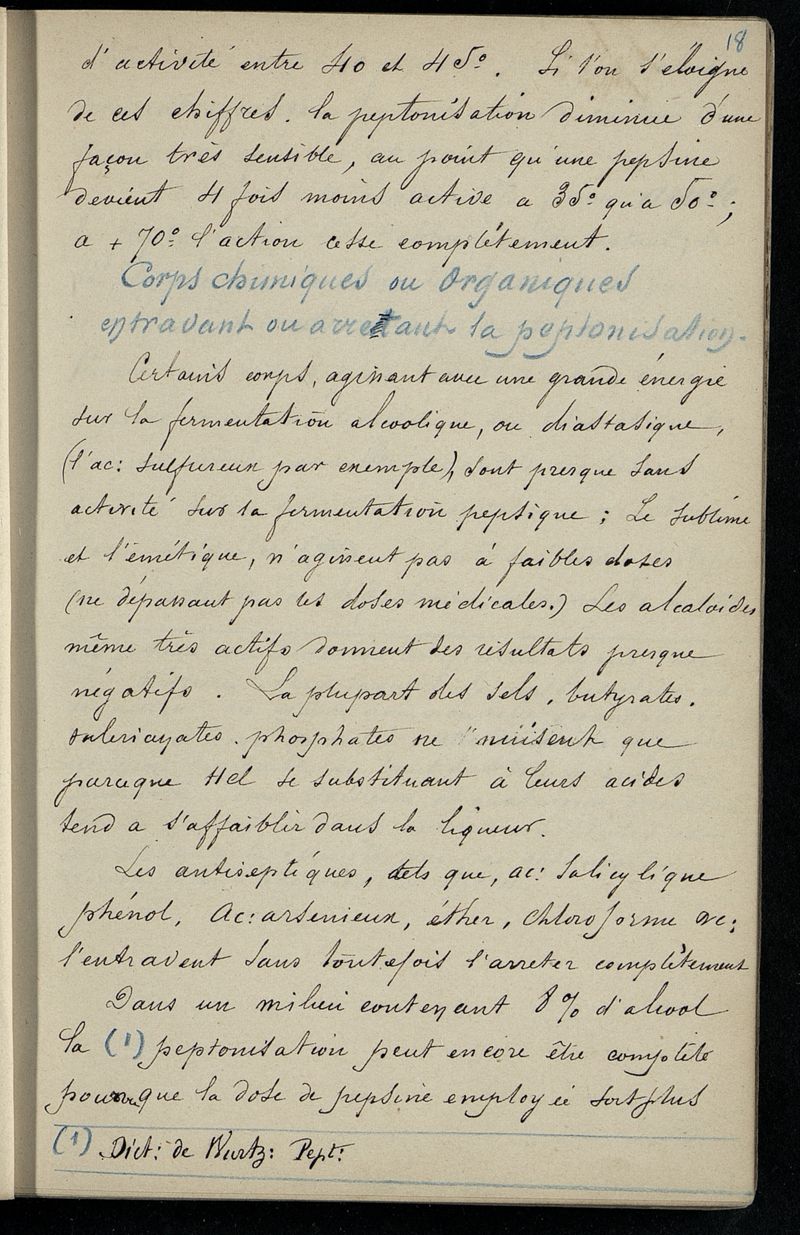 18
d'activité entre 40 et 45°. Si l'on s'éloigne
de ces chiffres. la peptonisation diminue d'une
façon très sensible, au point qu'une pepsine
devient 4 fois moins active a 35° qu'a 50°;
a + 70° l'action cesse complétement.
Corps chimiques ou organiques
entravant ou arretant la peptonisation.
Certains corps, agissant avec une grande énergie
sur la fermentation alcoolique, ou diastasique,
(l'ac: sulfureux par exemple), sont presque sans
activité sur la fermentation pepsique; Le sublimé
et l'émétique, n'agissent pas à faibles doses
(ne dépassant pas les doses médicales.) Les alcaloides
même très actifs donnent des résultats presque
négatifs. La plupart des sels, butyrates,
valerianates. phosphates ne nuisent que
parceque Hcl se substituant à leurs acides
tend a s'affaiblir dans la liqueur.
Les antiseptiques, tels que, ac: Salicylique
phénol, Ac: arsenieux, éther, chloroforme &c;
l'entravent sans toutefois l'arreter complètement
Dans un milieu contenant 8% d'alcool
la (1) peptonisation peut encore être complète
pourvu que la dose de pepsine employée soit plus
(1) Dict: de Wurtz: Pept: